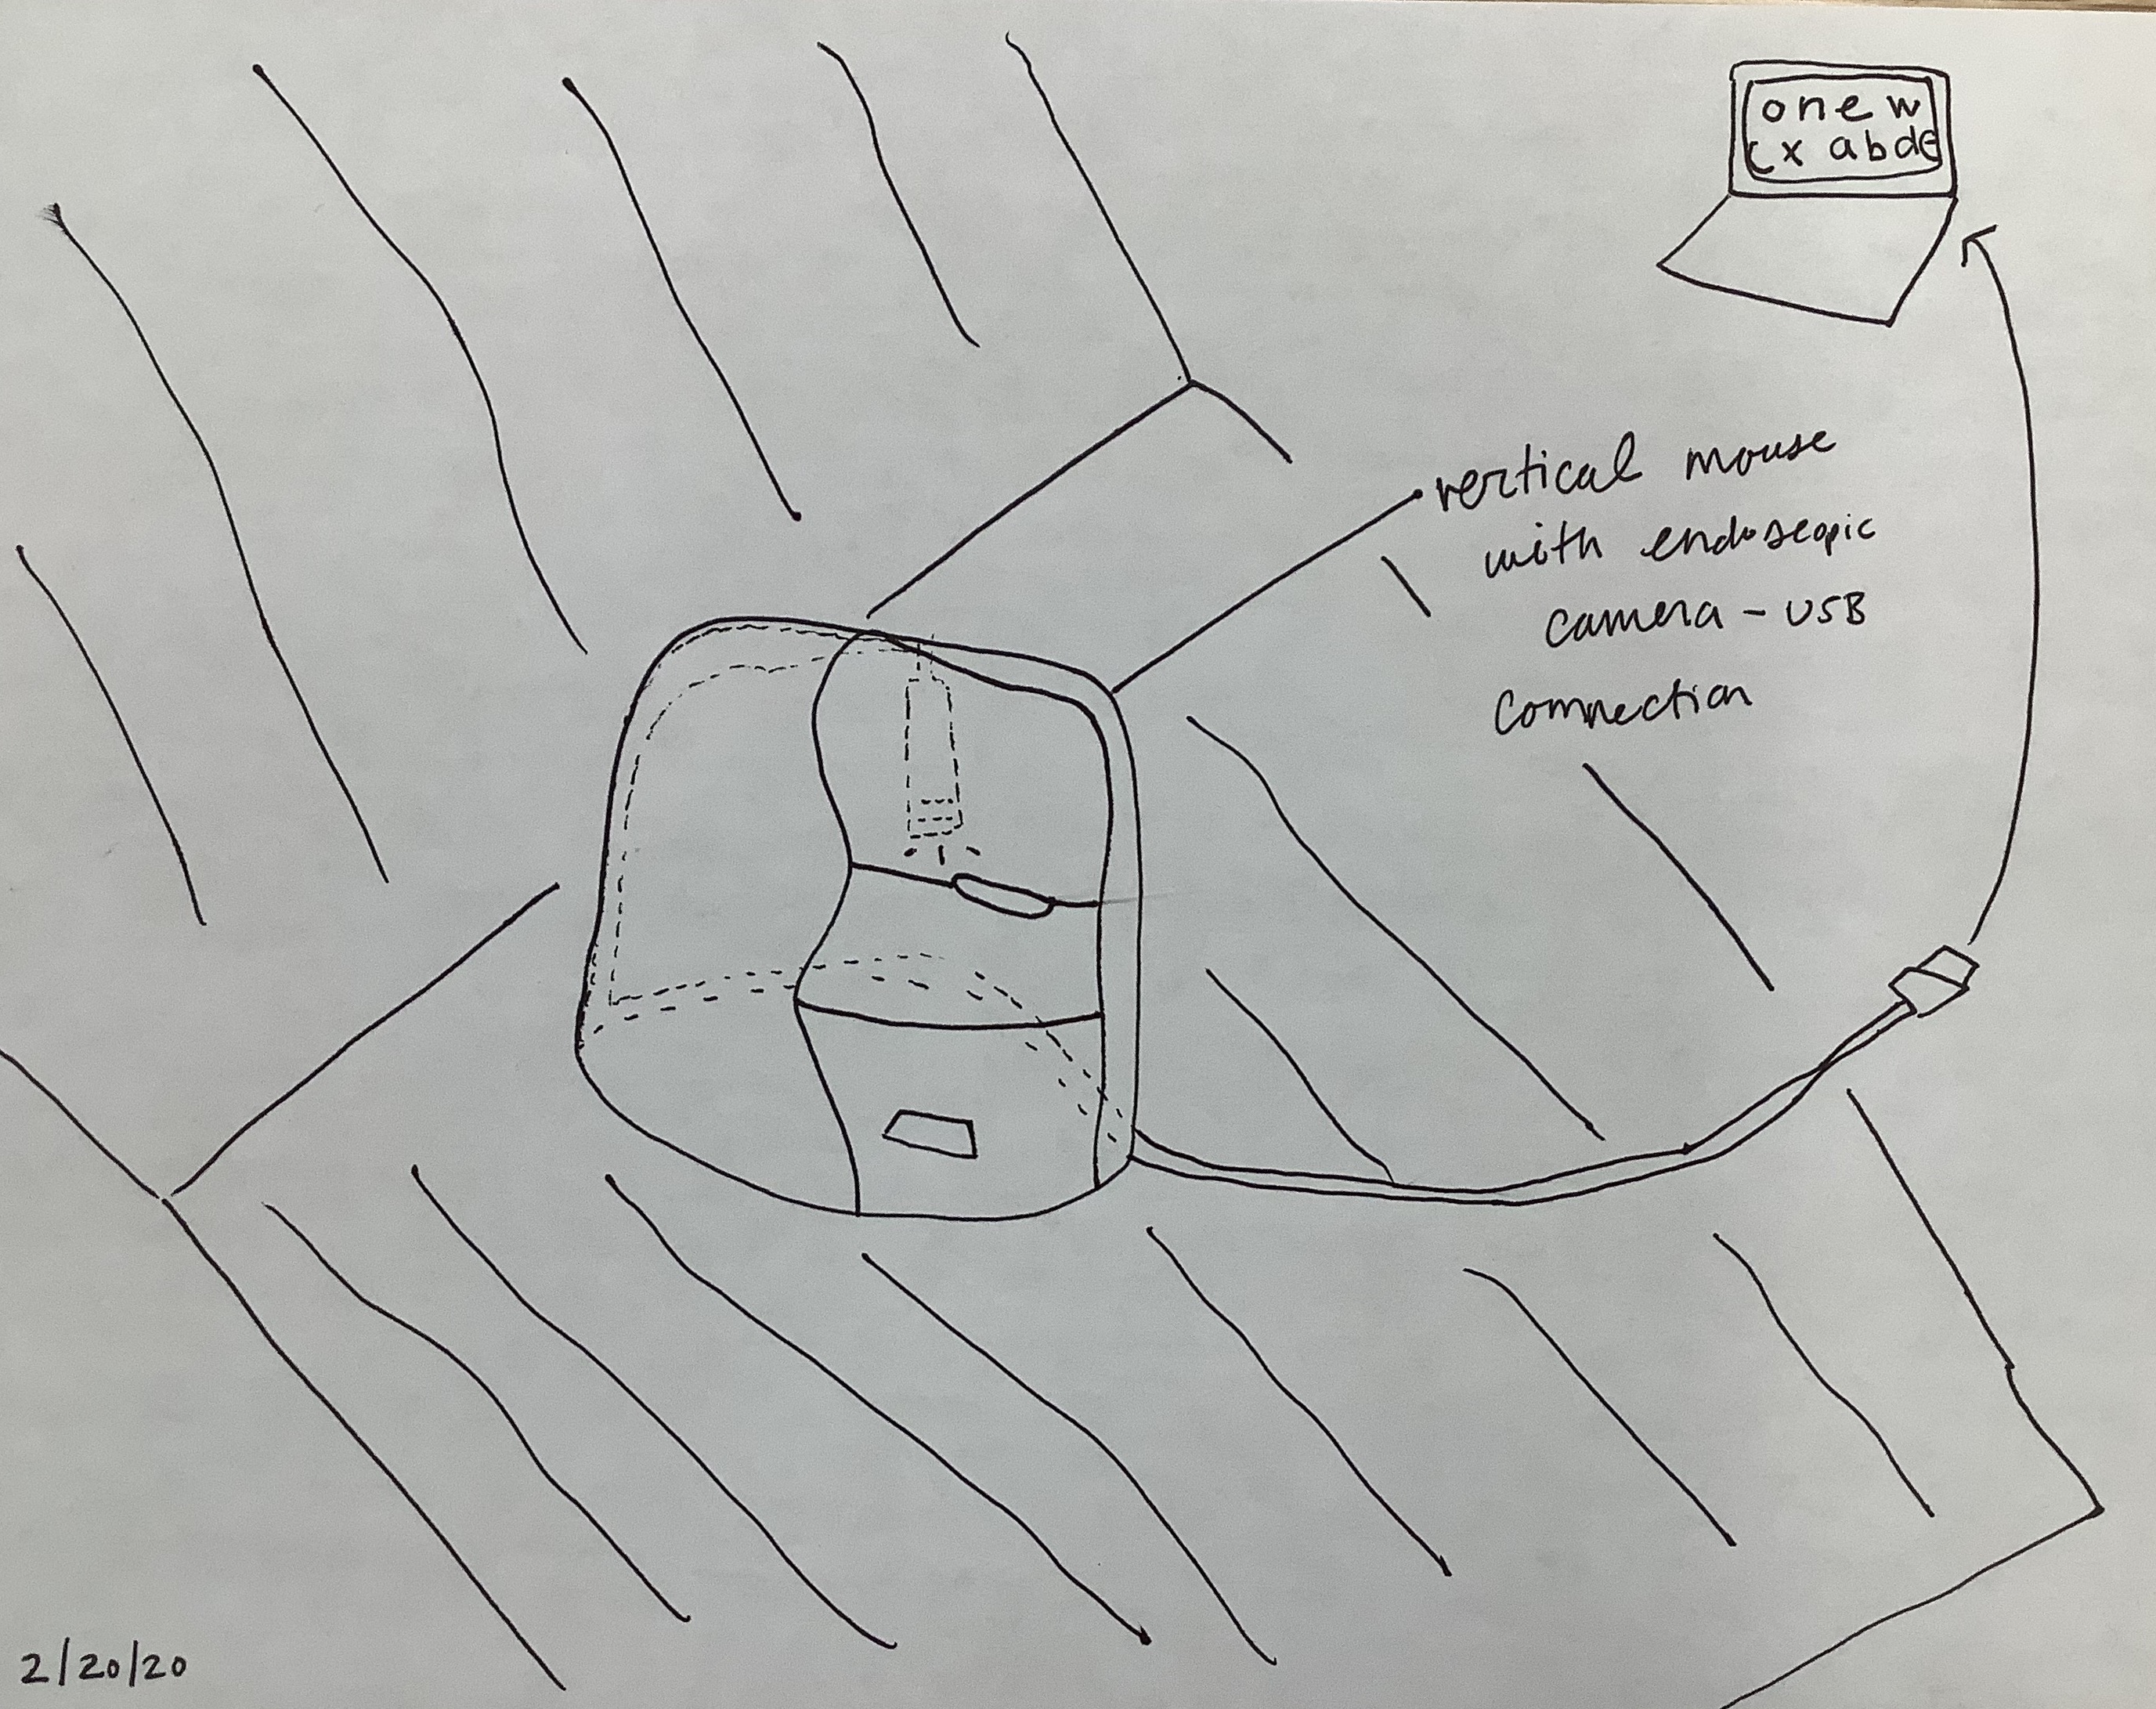 onew
cxabde
vertical mouse
with endoscopic
camera - USB
connection
2/20/20